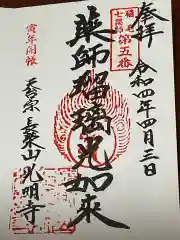 奉拝
令和四年四月三日
稲毛
七薬師
第五番
薬師瑠璃光如来
寅年開帳
天台宗
長楽山光明寺